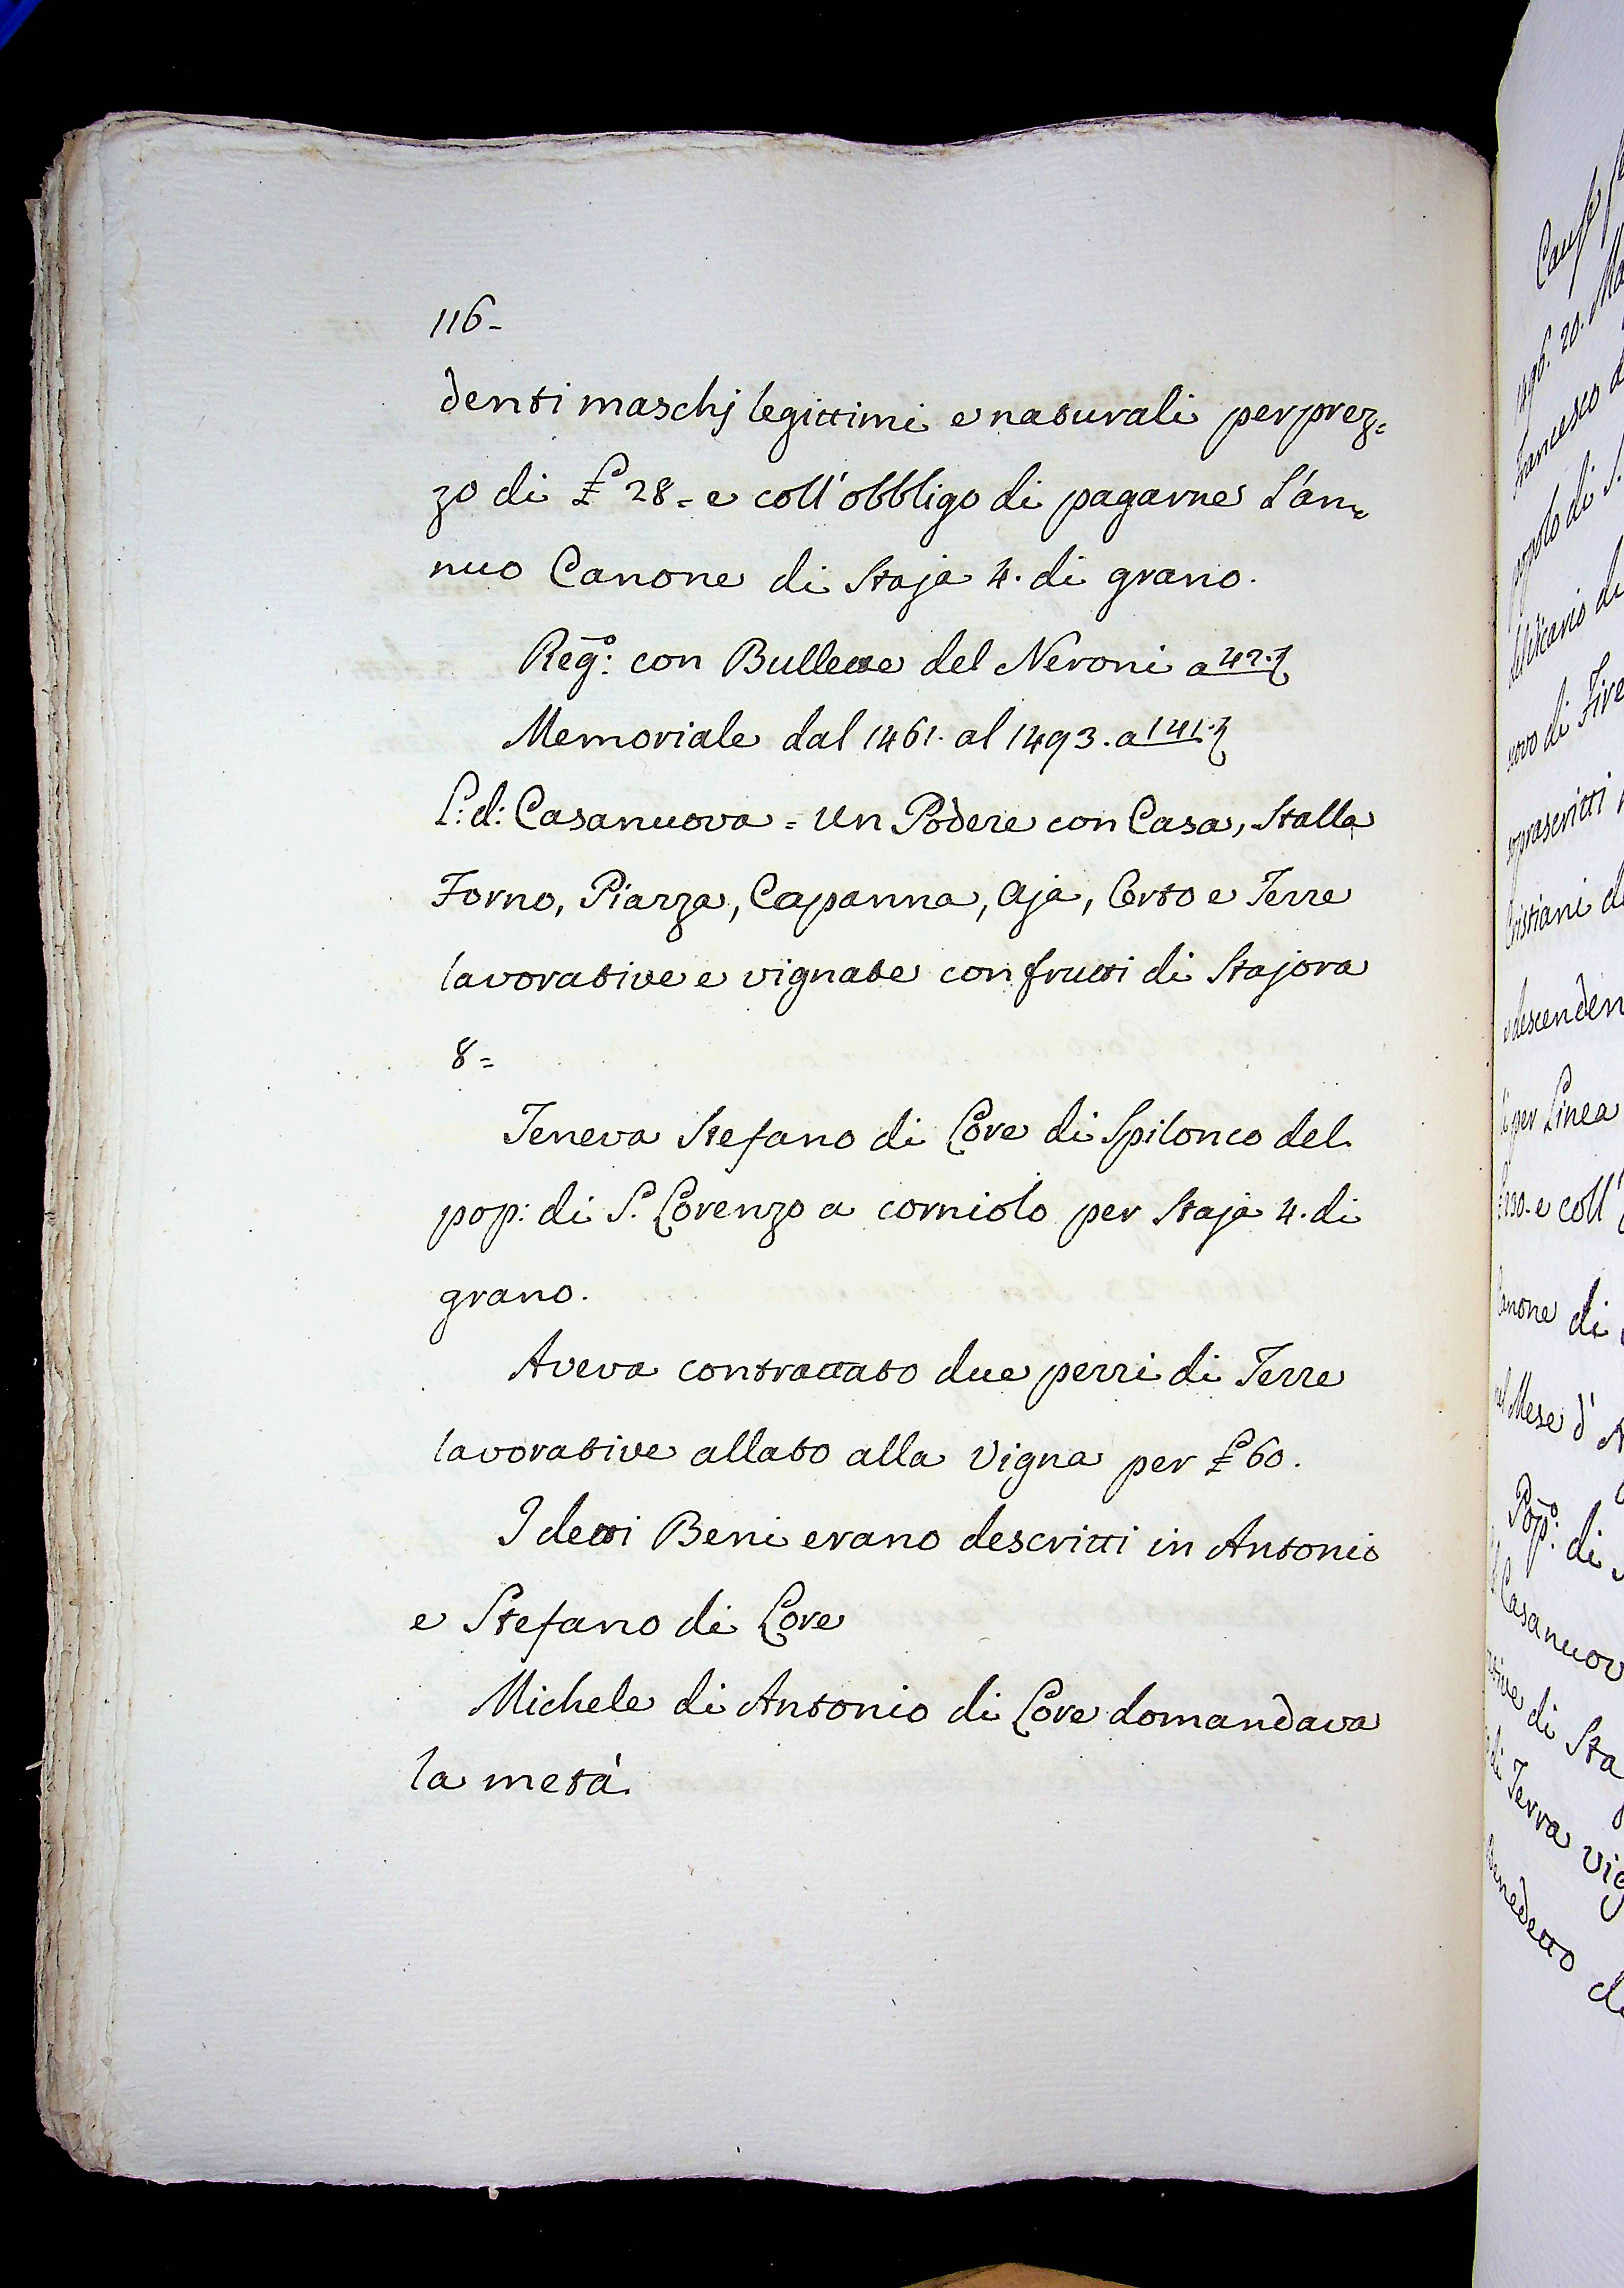 116-
denti maschj legittimi e naturali per prez=
zo di £ 28= e coll'obbligo di pagarne L'an=
nuo Canone di Staja 4. di grano.
Reg:o con Bullette del Neroni a 42.
Memoriale dal 1461. al 1493. a 141.
L:d: Casanuova = Un Podere con Casa, Stalla
Forno, Piazza, Capanna, Aja, Orto e Terre
lavorative e vignate con frutti di Stajora
8=
Teneva Stefano di Core di Spilonco del
pop: di S. Lorenzo a corniolo per Staja 4. di
grano.
Aveva contrattato due pezzi di Terre
lavorative allato alla Vigna per £ 60.
I detti Beni erano descritti in Antonio
e Stefano di Core
Michele di Antonio di Core domandava
la metà.
Cause
1496. 20. Ma
Francesco d
popolo di S.
uovo di Fire
soprascritti
Cristiani d
e descenden
li per Linea
e coll'
Canone di
nel Mese d'
Pop:o di
Casanuov
di Sta
di Terra vig
Benedetto d